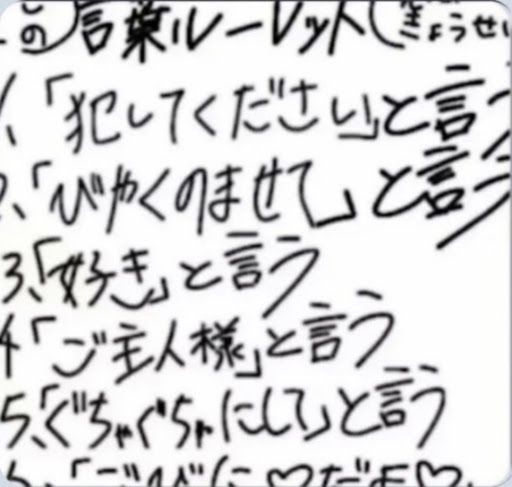 の)言葉ルーレット(きょうせい
1、「犯してください」と言う
2、「びやくのませて」と言う
3、「好き」と言う
4「ご主人様」と言う
5、「ぐちゃぐちゃにして」と言う